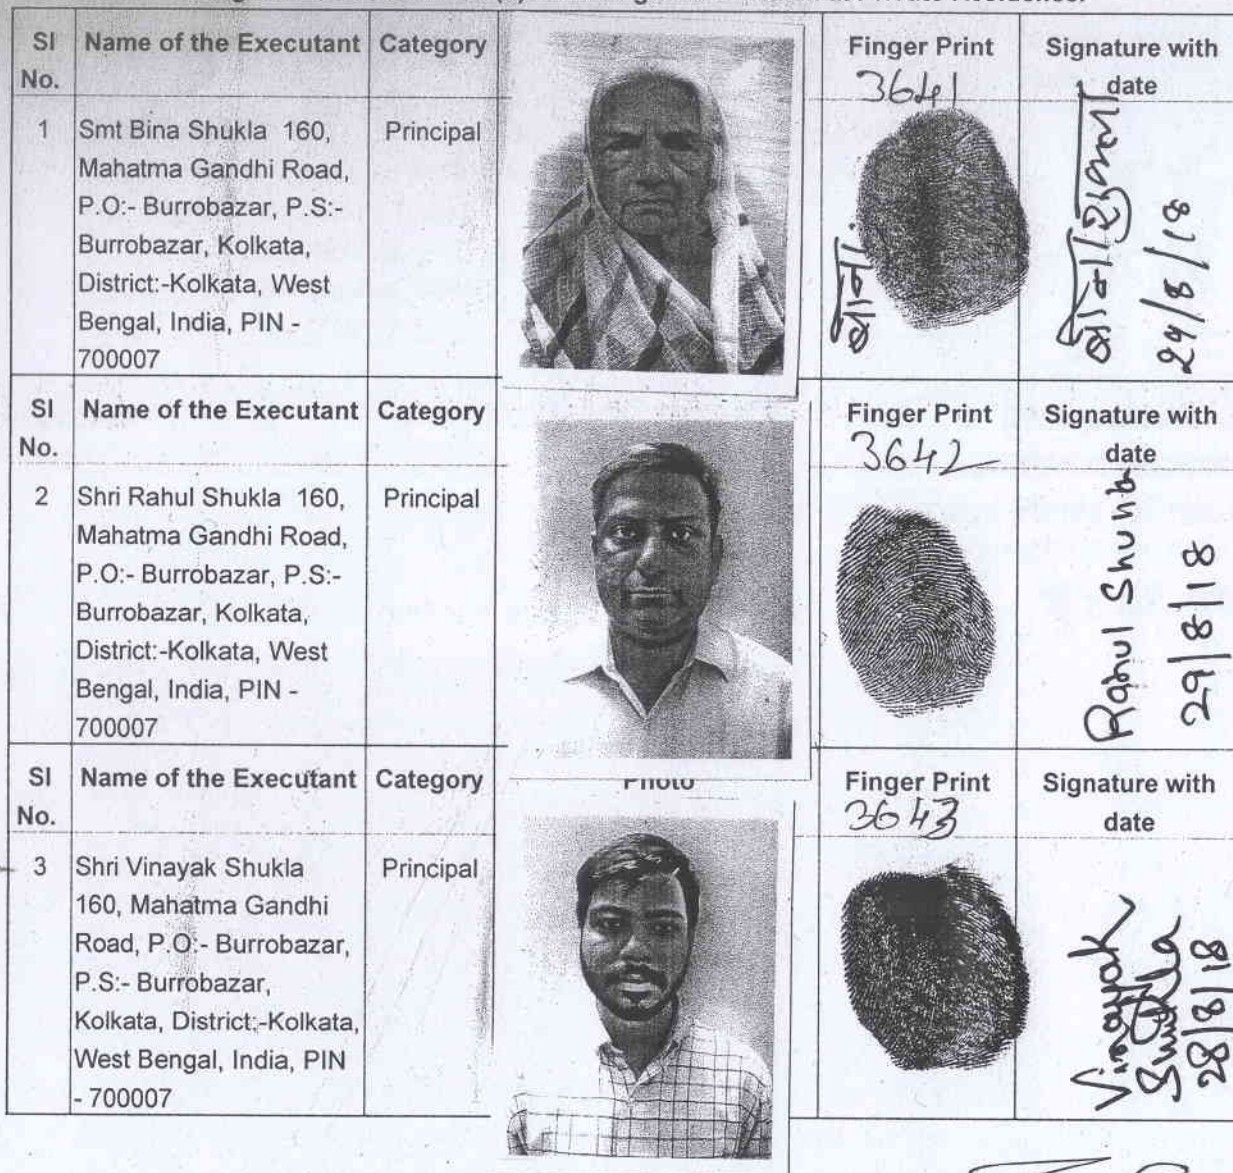 Private Residence.
Sl No. Name of the Executant Category Finger Print Signature with date
3641
1 Smt Bina Shukla 160, Principal
Mahatma Gandhi Road,
P.O:- Burrobazar, P.S:-
Burrobazar, Kolkata,
District:-Kolkata, West
Bengal, India, PIN -
700007
बीना
बीना शुक्ला
29/8/18
Sl No. Name of the Executant Category Finger Print Signature with date
3642
2 Shri Rahul Shukla 160, Principal
Mahatma Gandhi Road,
P.O:- Burrobazar, P.S:-
Burrobazar, Kolkata,
District:-Kolkata, West
Bengal, India, PIN -
700007
Rahul
29/8/18
Sl No. Name of the Executant Category Photo Finger Print Signature with date
3643
3 Shri Vinayak Shukla Principal
160, Mahatma Gandhi
Road, P.O:- Burrobazar,
P.S:- Burrobazar,
Kolkata, District:-Kolkata,
West Bengal, India, PIN
- 700007
Vinayak
Shukla
28/8/18